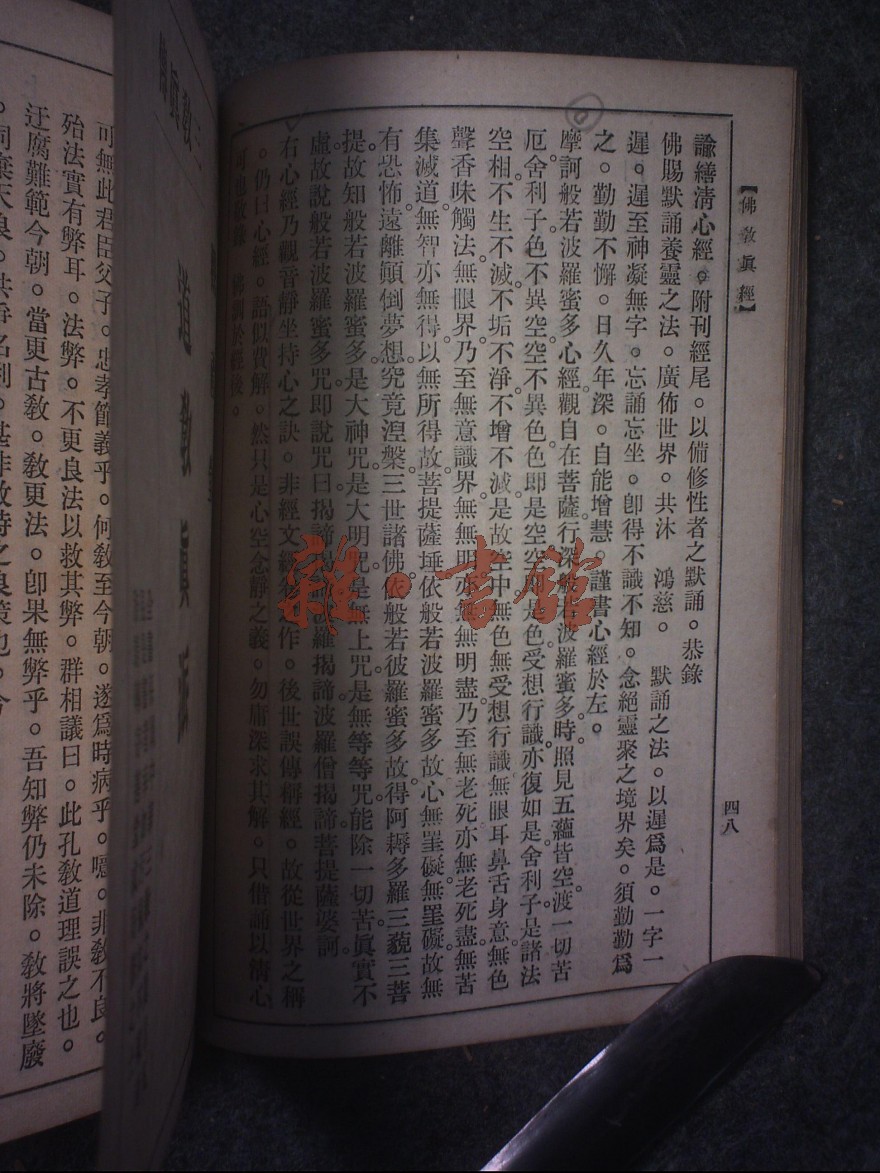 【佛教眞經】
四八
諭繕淸心經。附刊經尾。以備修性者之默誦。恭錄
佛賜默誦養靈之法。廣佈世界。共沐 鴻慈。 默誦之法。以遲爲是。一字一
遲。遲至神凝無字。忘誦忘坐。卽得不識不知。念絕靈聚之境界矣。須勤勤爲
之。勤勤不懈。日久年深。自能增慧。謹書心經於左。
摩訶般若波羅蜜多心經。觀自在菩薩行深般若波羅蜜多時。照見五蘊皆空。渡一切苦
厄。舍利子色不異空。空不異色。色卽是空。空卽是色。受想行識。亦復如是。舍利子是諸法
空相。不生不滅。不垢不淨。不增不減。是故空中無色。無受想行識無眼耳鼻舌身意。無色
聲香味觸法。無眼界。乃至無意識界。無無明。亦無無明盡。乃至無老死。亦無老死盡。無苦
集滅道。無智亦無得。以無所得故。菩提薩埵依般若波羅蜜多故。心無罣礙。無罣礙故。無
有恐怖。遠離顚倒夢想。究竟涅槃。三世諸佛。依般若彼羅蜜多故。得阿耨多羅三藐三菩
提。故知般若波羅蜜多。是大神咒。是大明咒。是無上咒。是無等等咒。能除一切苦。眞實不
虛。故說般若波羅蜜多咒。卽說咒曰。揭諦揭諦波羅揭諦波羅僧揭諦菩提薩婆訶。
右心經乃觀音靜坐持心之訣。非經文經作。後世誤傳稱經。故從世界之稱
。仍曰心經。語似費解。然只是心空念靜之義。勿庸深求其解。只借誦以淸心
可也。於經後。
雜·書館
道教眞
可無此君臣父子。忠孝節義乎。何教至今朝。遂爲時病乎。噫。非教不良。
殆法實有弊耳。法弊。不更良法以救其弊。群相議曰。此孔教道理誤之也。
迂腐難範今朝。當更古教。教更法。卽果無弊乎。吾知弊仍未除。教將墜廢